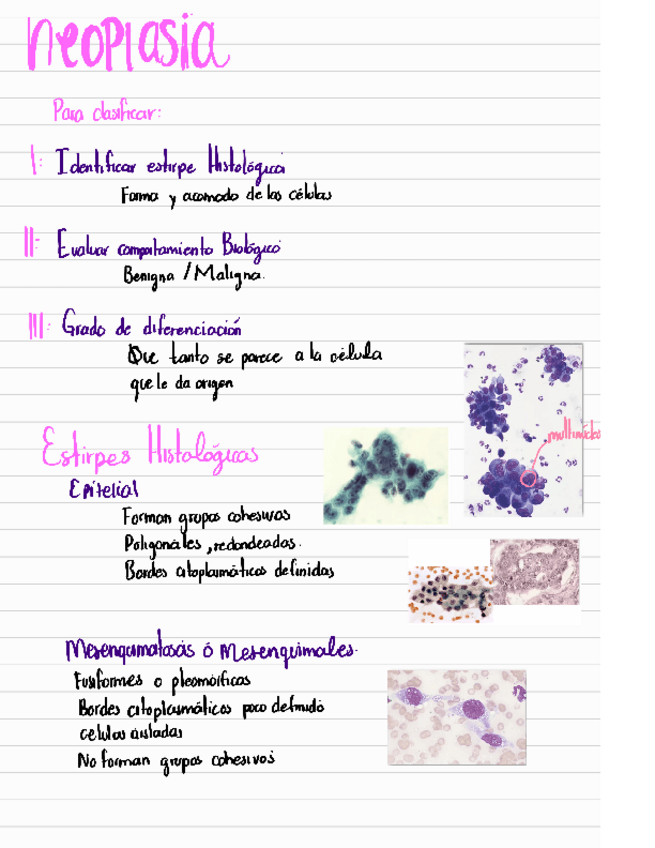 Neoplasia
Para clasificar:
I: Identificar estirpe Histológica
Forma y acomodo de las células
II: Evaluar comportamiento Biológico
Benigna / Maligna.
III: Grado de diferenciación
Que tanto se parece a la célula
que le da origen
Estirpes Histológicas
Epitelial
Forman grupos cohesivos
Poligonales, redondeadas.
Bordes citoplasmáticos definidos
Mesenquimatosas ó Mesenquimales.
Fusiformes o pleomórficas
Bordes citoplasmáticos poco definido
celulas aisladas
No forman grupos cohesivos